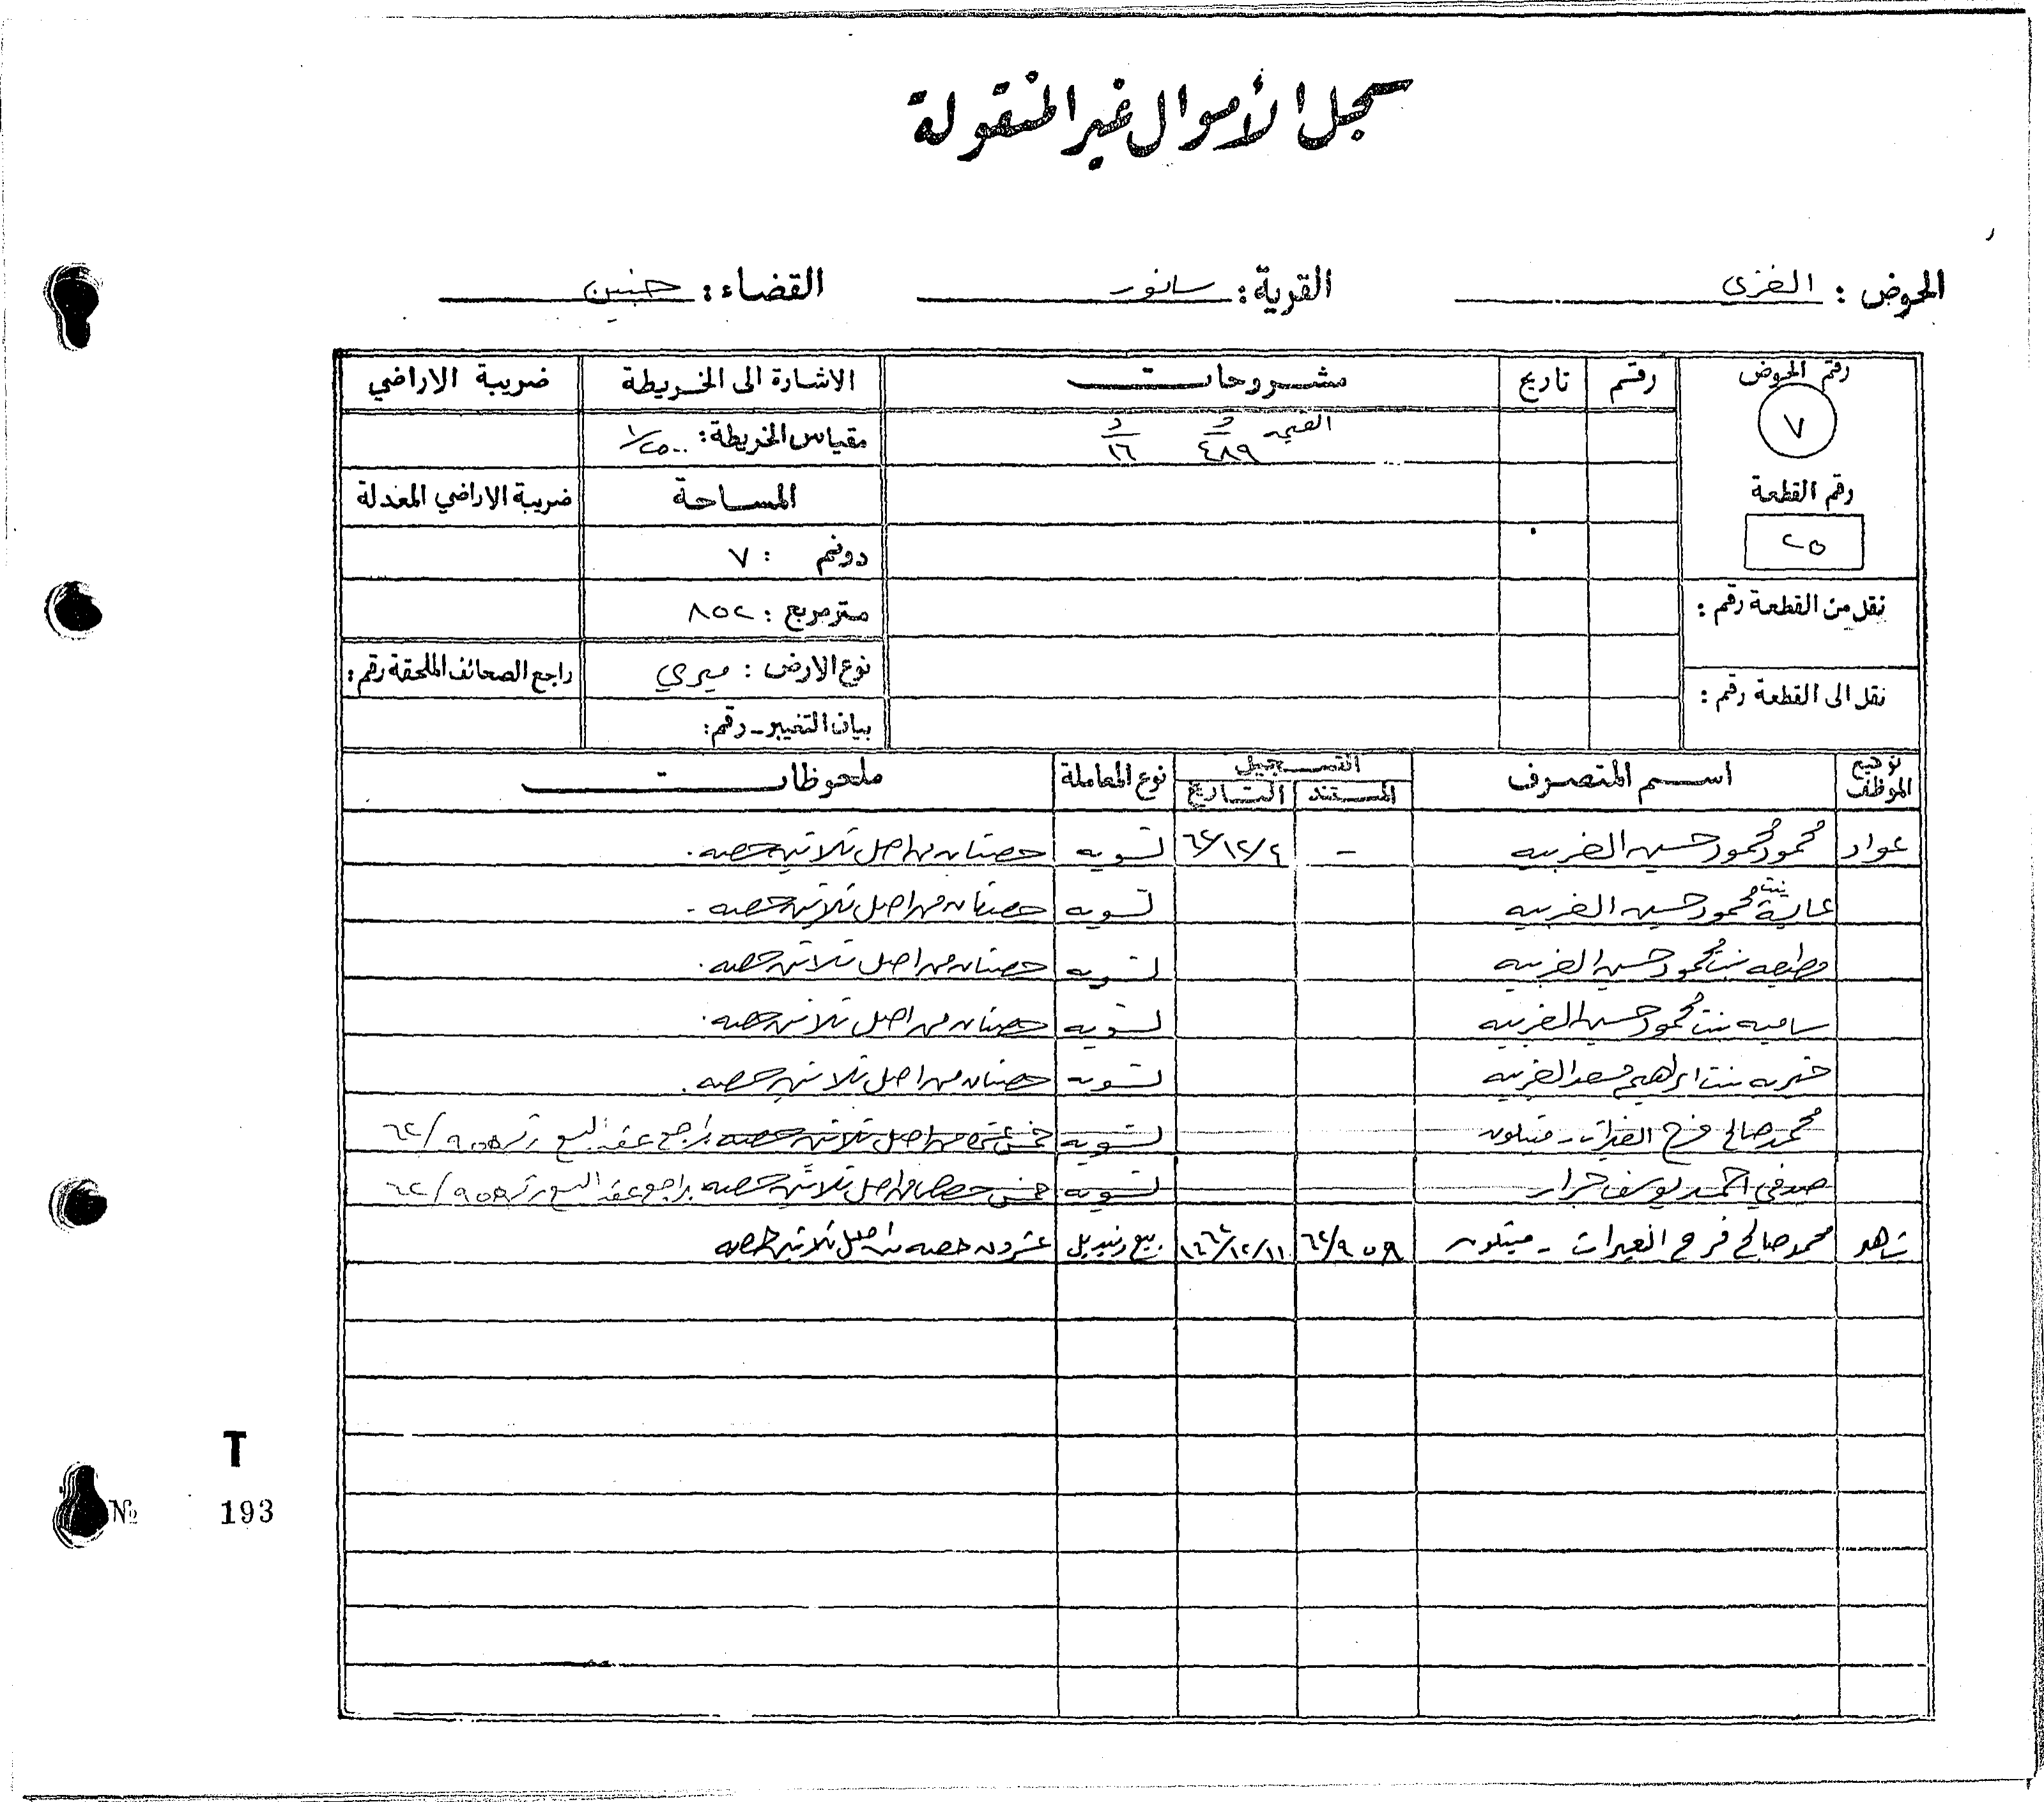 سجل الأموال غير المنقولة
الحوض : الغزي القرية : سانور القضاء : جنين
رقم الحوض رقم تاريخ مشروحات الاشارة الى الخريطة ضريبة الاراضي
٧ القيمه ٤٨٩ د ١٦ د مقياس الخريطة : ١/٢٥٠٠
رقم القطعة المساحة ضريبة الاراضي المعدلة
٢٥ دونم : ٧
نقل من القطعة رقم : متر مربع : ٨٥٢
نوع الارض : ميري راجع الصحائف الملحقة رقم :
نقل الى القطعة رقم : بيان التغيير - رقم :
توقيع الموظف اسم المتصرف التسجيل المستند التاريخ نوع المعاملة ملحوظات
عواد محمود محمود حسين الغربيه - ٦٢/١٢/٤ تسويه حصتان من اصل ثلاثين حصه .
محمود حسين الغربيه بنت تسويه حصتان من اصل ثلاثين حصه .
مطيعه بنت محمود حسين الغربيه تسويه حصتان من اصل ثلاثين حصه .
ساميه بنت محمود حسين الغربيه تسويه حصتان من اصل ثلاثين حصه .
بنت ابراهيم الغربيه تسويه حصتان من اصل ثلاثين حصه .
محمد صالح فرح - ميثلون تسويه خمس عشره من اصل ثلاثين حصه راجع عقد البيع رقم ٦٢/٩٥٨
صدقي احمد يوسف جرار تسويه خمس حصص من اصل ثلاثين حصه راجع عقد البيع رقم ٦٢/٩٥٨
شاهد محمد صالح فرح - ميثلون ٦٢/٩٥٨ ١٩٦٢/١٢/١١ بيع عشرون حصه من اصل ثلاثين حصه
T
№ 193